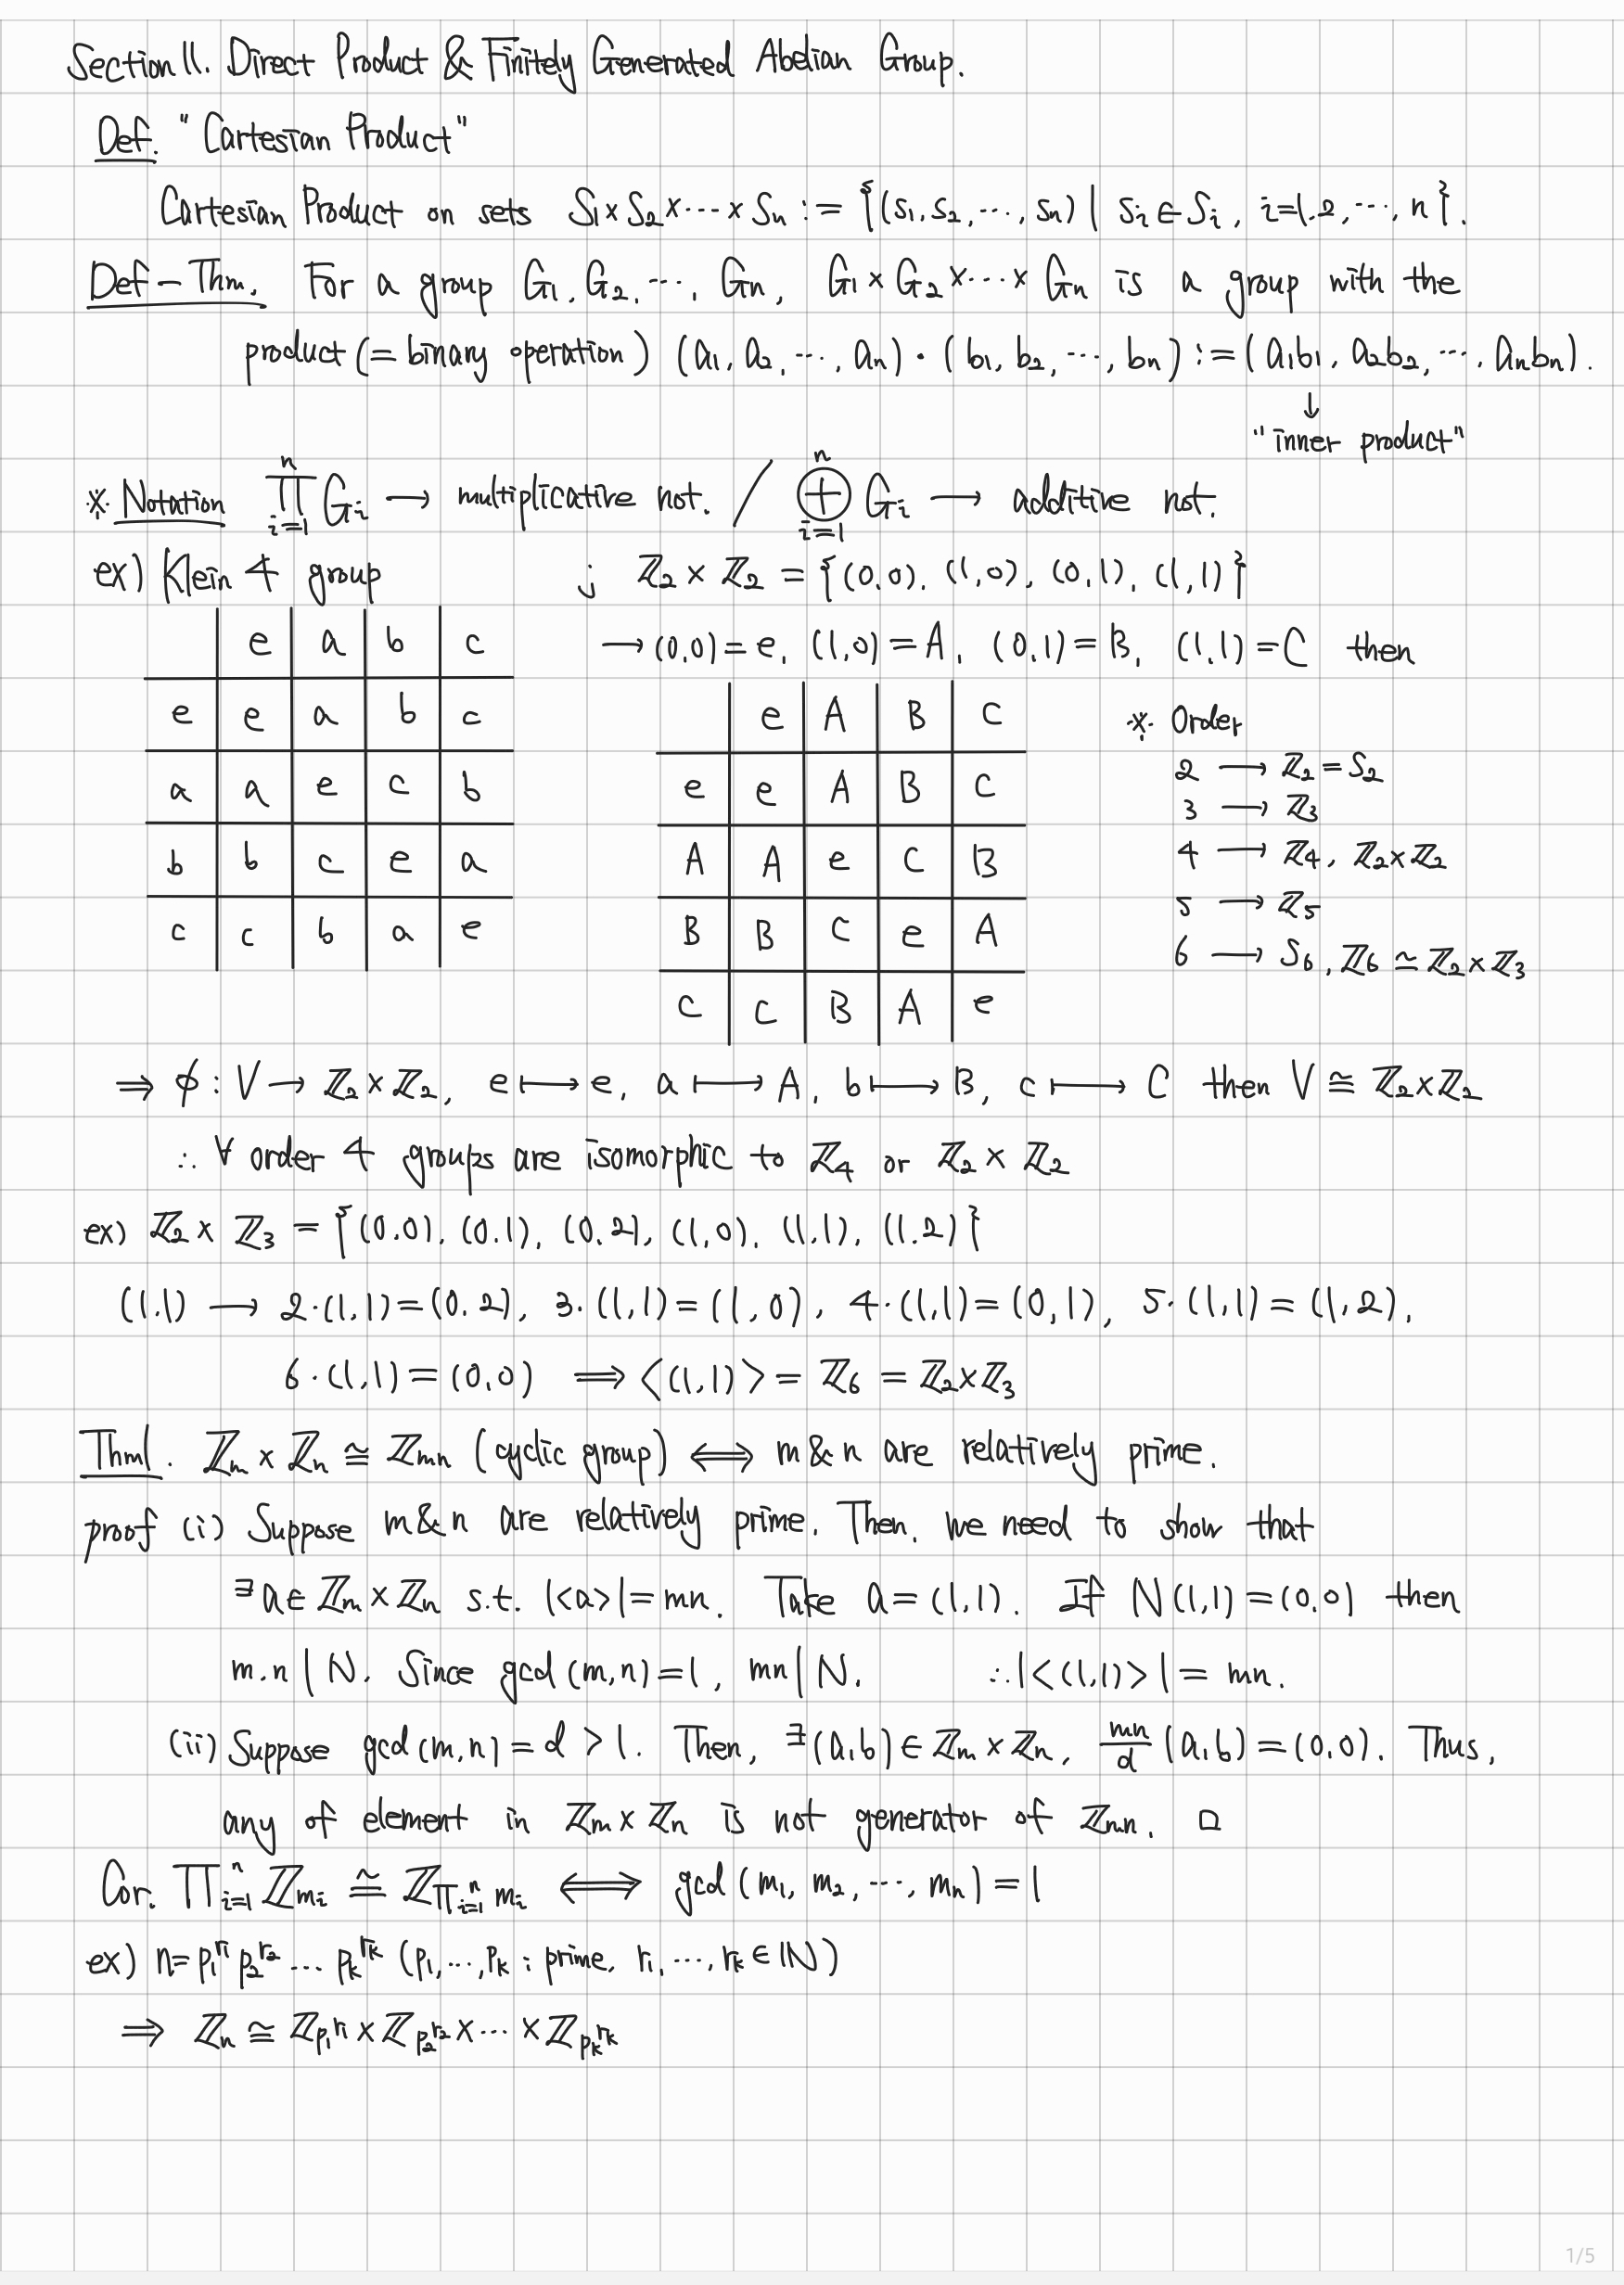 Section 11. Direct Product & Finitely Generated Abelian Group.
Def. "Cartesian Product"
Cartesian Product on sets S₁ × S₂ × ⋯ × Sₙ := {(s₁, s₂, ⋯, sₙ) | sᵢ ∈ Sᵢ, i=1, 2, ⋯, n}.
Def-Thm. For a group G₁, G₂, ⋯, Gₙ, G₁ × G₂ × ⋯ × Gₙ is a group with the
product (= binary operation) (a₁, a₂, ⋯, aₙ) · (b₁, b₂, ⋯, bₙ) := (a₁b₁, a₂b₂, ⋯, aₙbₙ).
↓
"inner product"
※ Notation ∏_{i=1}^{n} Gᵢ → multiplicative not. / ⊕_{i=1}^{n} Gᵢ → additive not.
ex) Klein 4 group ; ℤ₂ × ℤ₂ = {(0,0), (1,0), (0,1), (1,1)}
→ (0,0) = e, (1,0) = A, (0,1) = B, (1,1) = C then
e a b c
e e a b c
a a e c b
b b c e a
c c b a e
e A B C
e e A B C
A A e C B
B B C e A
C C B A e
※ Order
2 → ℤ₂ = S₂
3 → ℤ₃
4 → ℤ₄, ℤ₂×ℤ₂
5 → ℤ₅
6 → S₆, ℤ₆ ≃ ℤ₂×ℤ₃
⇒ ϕ : V → ℤ₂ × ℤ₂, e ↦ e, a ↦ A, b ↦ B, c ↦ C then V ≅ ℤ₂×ℤ₂
∴ ∀ order 4 groups are isomorphic to ℤ₄ or ℤ₂ × ℤ₂
ex) ℤ₂ × ℤ₃ = {(0,0), (0,1), (0,2), (1,0), (1,1), (1,2)}
(1,1) → 2·(1,1) = (0,2), 3·(1,1) = (1,0), 4·(1,1) = (0,1), 5·(1,1) = (1,2),
6·(1,1) = (0,0) ⟹ <(1,1)> = ℤ₆ = ℤ₂×ℤ₃
Thm1. ℤₘ × ℤₙ ≅ ℤₘₙ (cyclic group) ⟺ m & n are relatively prime.
proof (i) Suppose m & n are relatively prime. Then, we need to show that
∃a∈ ℤₘ × ℤₙ s.t. |<a>| = mn. Take a = (1,1). If N(1,1) = (0,0) then
m, n | N. Since gcd(m,n) = 1, mn | N. ∴ |<(1,1)>| = mn.
(ii) Suppose gcd(m,n) = d > 1. Then, ∃(a,b) ∈ ℤₘ × ℤₙ, mn/d (a,b) = (0,0). Thus,
any of element in ℤₘ × ℤₙ is not generator of ℤₘₙ. □
Cor. ∏_{i=1}^{n} ℤ_{mᵢ} ≅ ℤ_{∏_{i=1}^{n} mᵢ} ⟺ gcd(m₁, m₂, ⋯, mₙ) = 1
ex) n = p₁^{r₁} p₂^{r₂} ⋯ pₖ^{rₖ} (p₁, ⋯, pₖ : prime, r₁, ⋯, rₖ ∈ ℕ)
⇒ ℤₙ ≅ ℤ_{p₁^{r₁}} × ℤ_{p₂^{r₂}} × ⋯ × ℤ_{pₖ^{rₖ}}
1/5